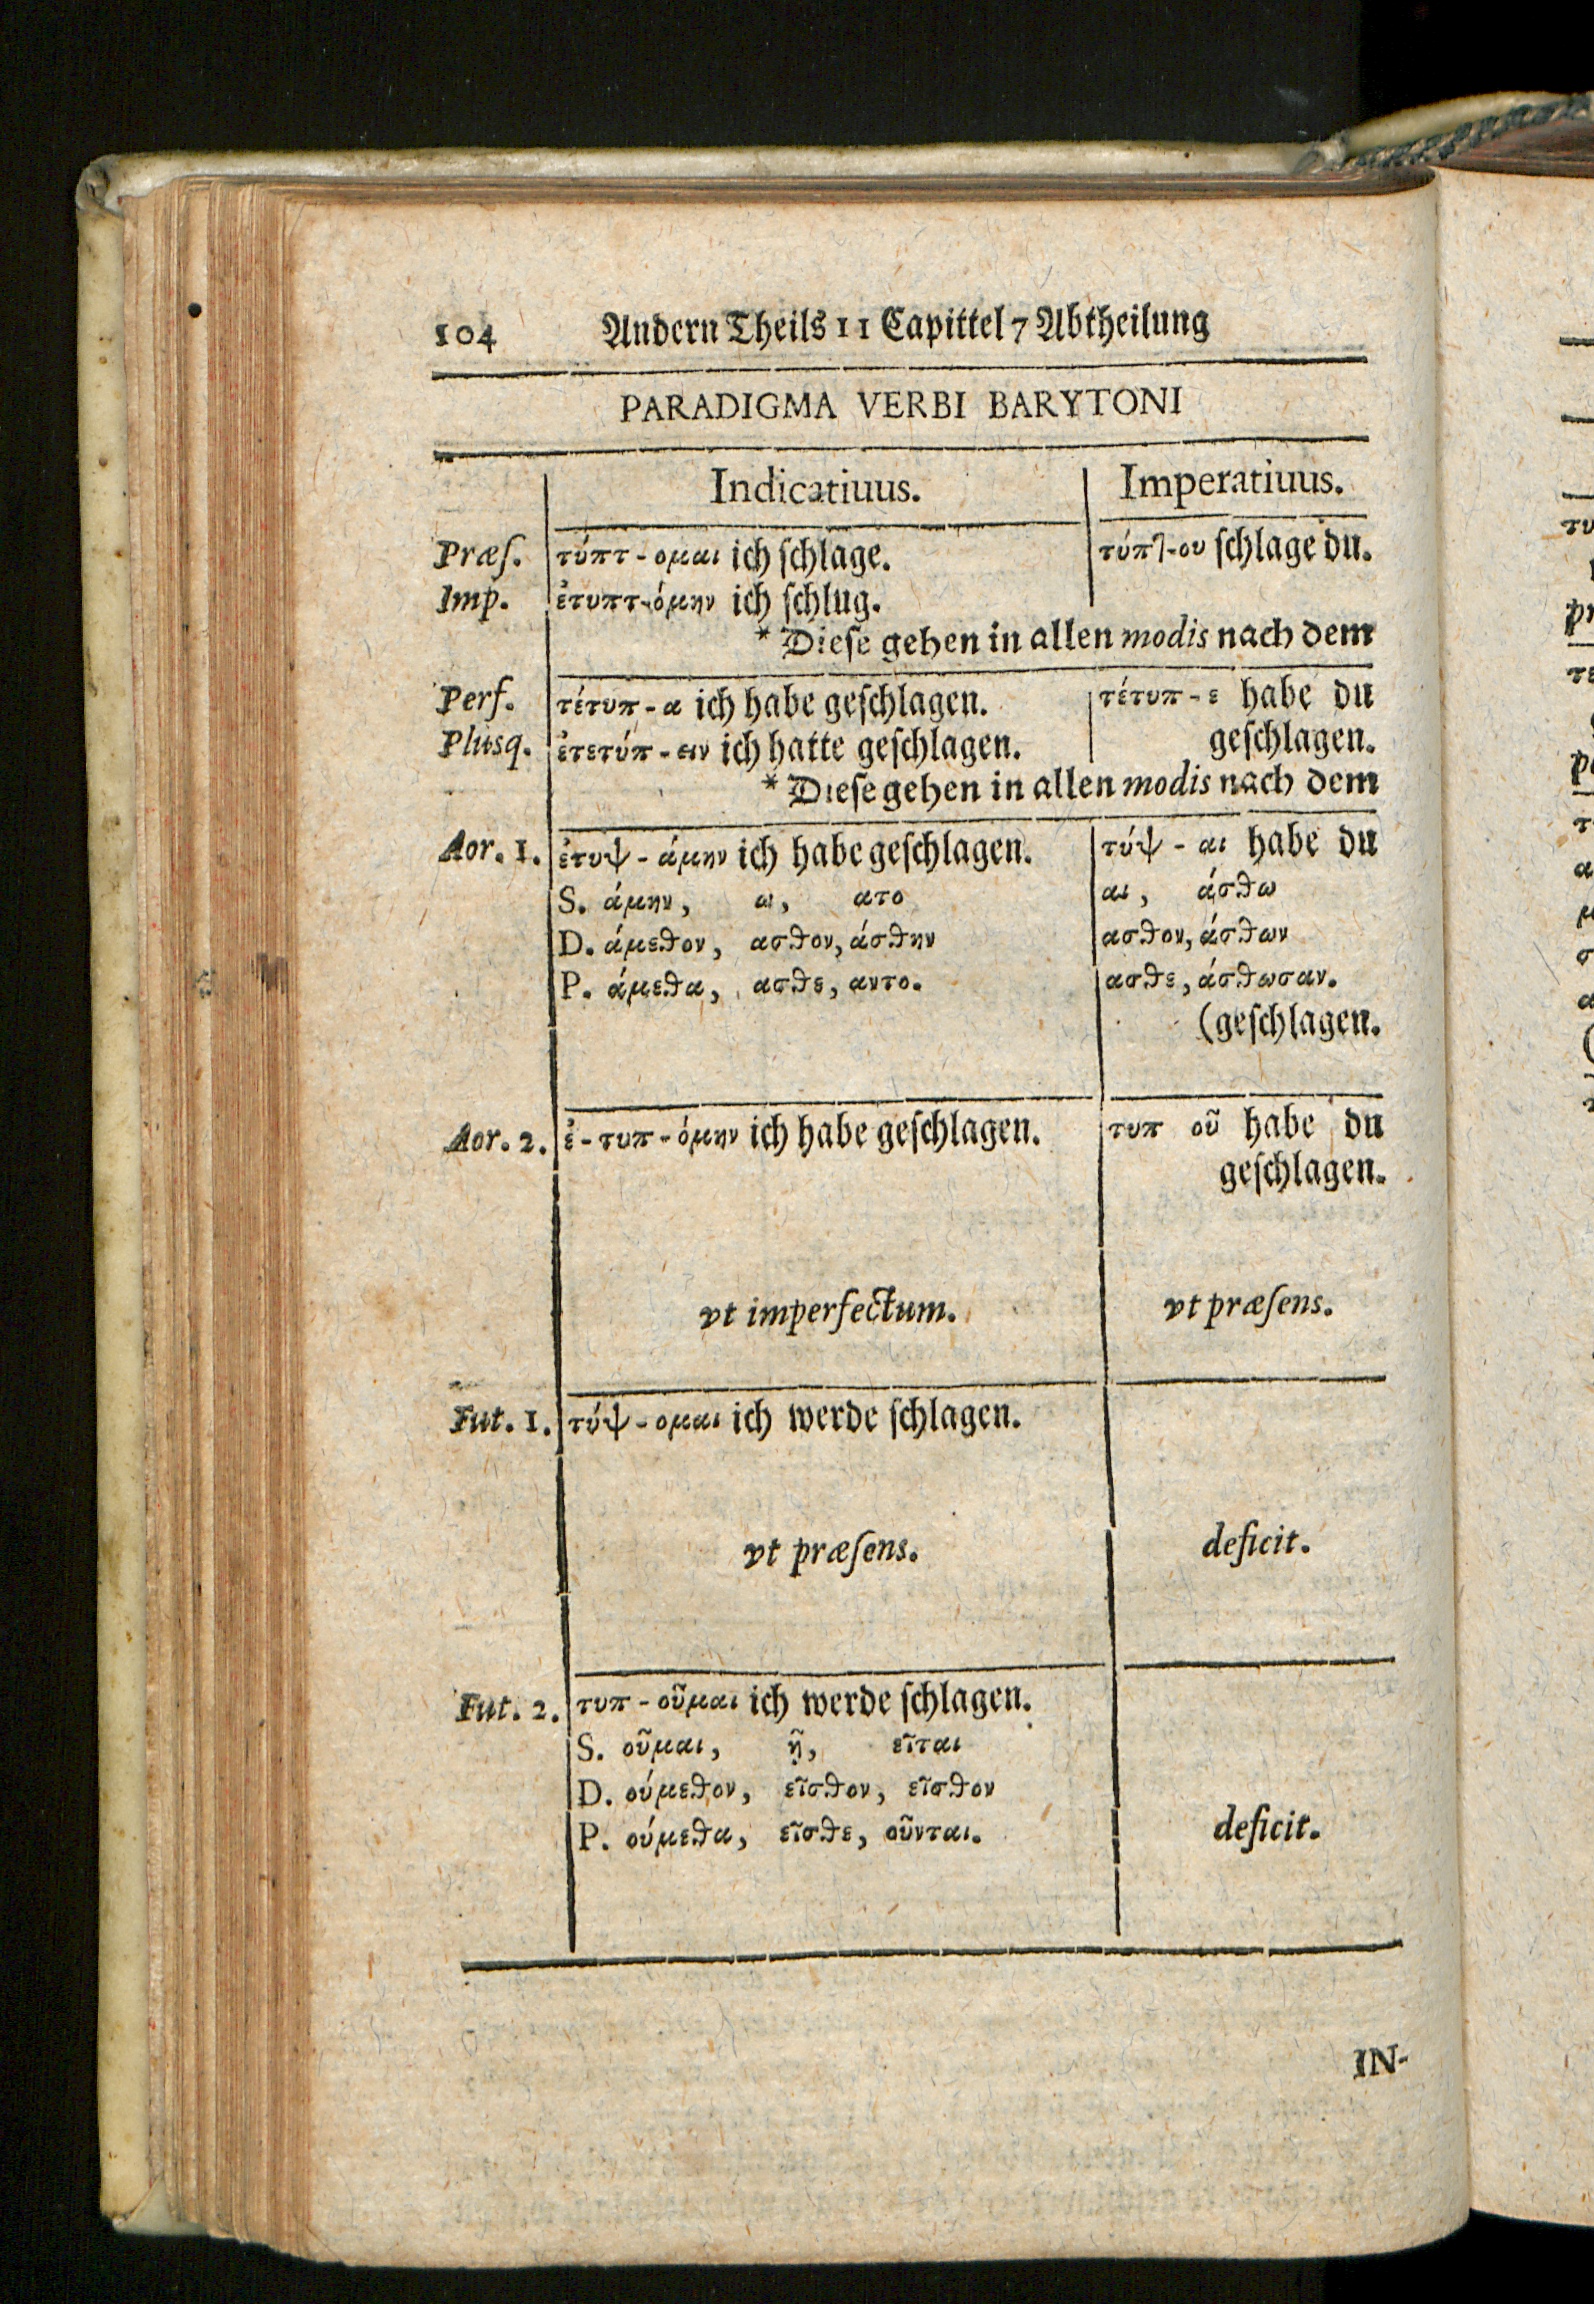 104 Andern Theils 11 Capittel 7 Abtheilung
PARADIGMA VERBI BARYTONI
Indicatiuus. Imperatiuus.
Præſ. τύπτ-ομαι ich ſchlage. τύπτ-ου ſchlage du.
Imp. ἐτυπτ-όμην ich ſchlug.
* Dieſe gehen in allen modis nach dem
Perf. τέτυπ-α ich habe geſchlagen. τέτυπ-ε habe du
Plusq. ἐτετύπ-ειν ich hatte geſchlagen. geſchlagen.
* Dieſe gehen in allen modis nach dem
Aor. 1. ἐτυψ-άμην ich habe geſchlagen. τύψ-αι habe du
S. άμην, ω, ατο αι, άσθω
D. άμεθον, ασθον, άσθην ασθον, άσθων
P. άμεθα, ασθε, αντο. ασθε, άσθωσαν.
(geſchlagen.
Aor. 2. ἐ-τυπ-όμην ich habe geſchlagen. τυπ οῦ habe du
geſchlagen.
vt imperfectum. vt præſens.
Fut. 1. τύψ-ομαι ich werde ſchlagen.
vt præſens. deficit.
Fut. 2. τυπ-οῦμαι ich werde ſchlagen.
S. οῦμαι, ῇ, εῖται
D. ούμεθον, εῖσθον, εῖσθον
P. ούμεθα, εῖσθε, οῦνται. deficit.
IN-